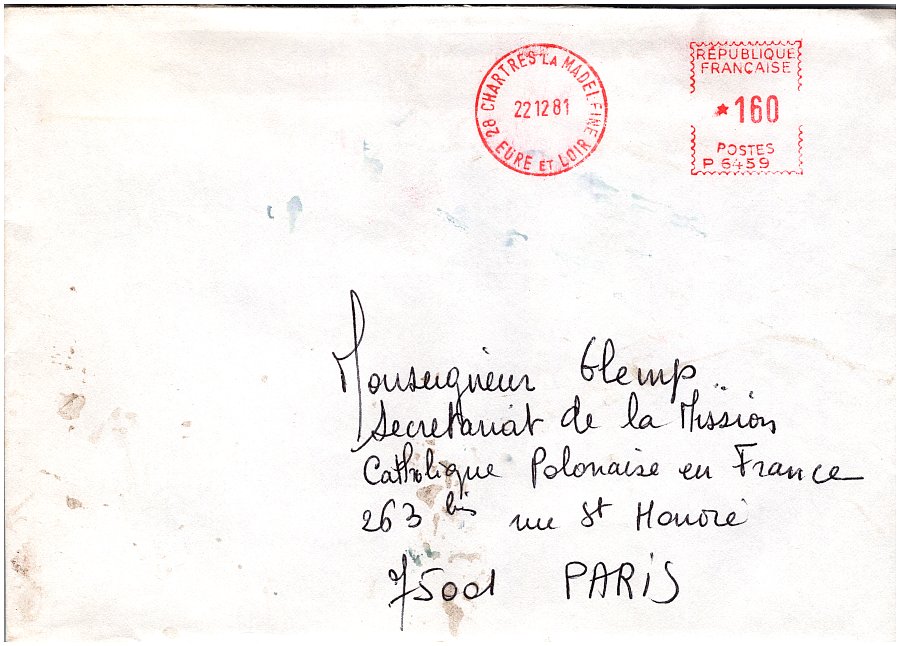 28 CHARTRES LA MADELEINE
22 12 81
EURE ET LOIR
RÉPUBLIQUE
FRANÇAISE
*160
POSTES
P 6459
Monseigneur Glemp
Secretariat de la Mission
Catholique Polonaise en France
263 bis rue St Honoré
75001 PARIS